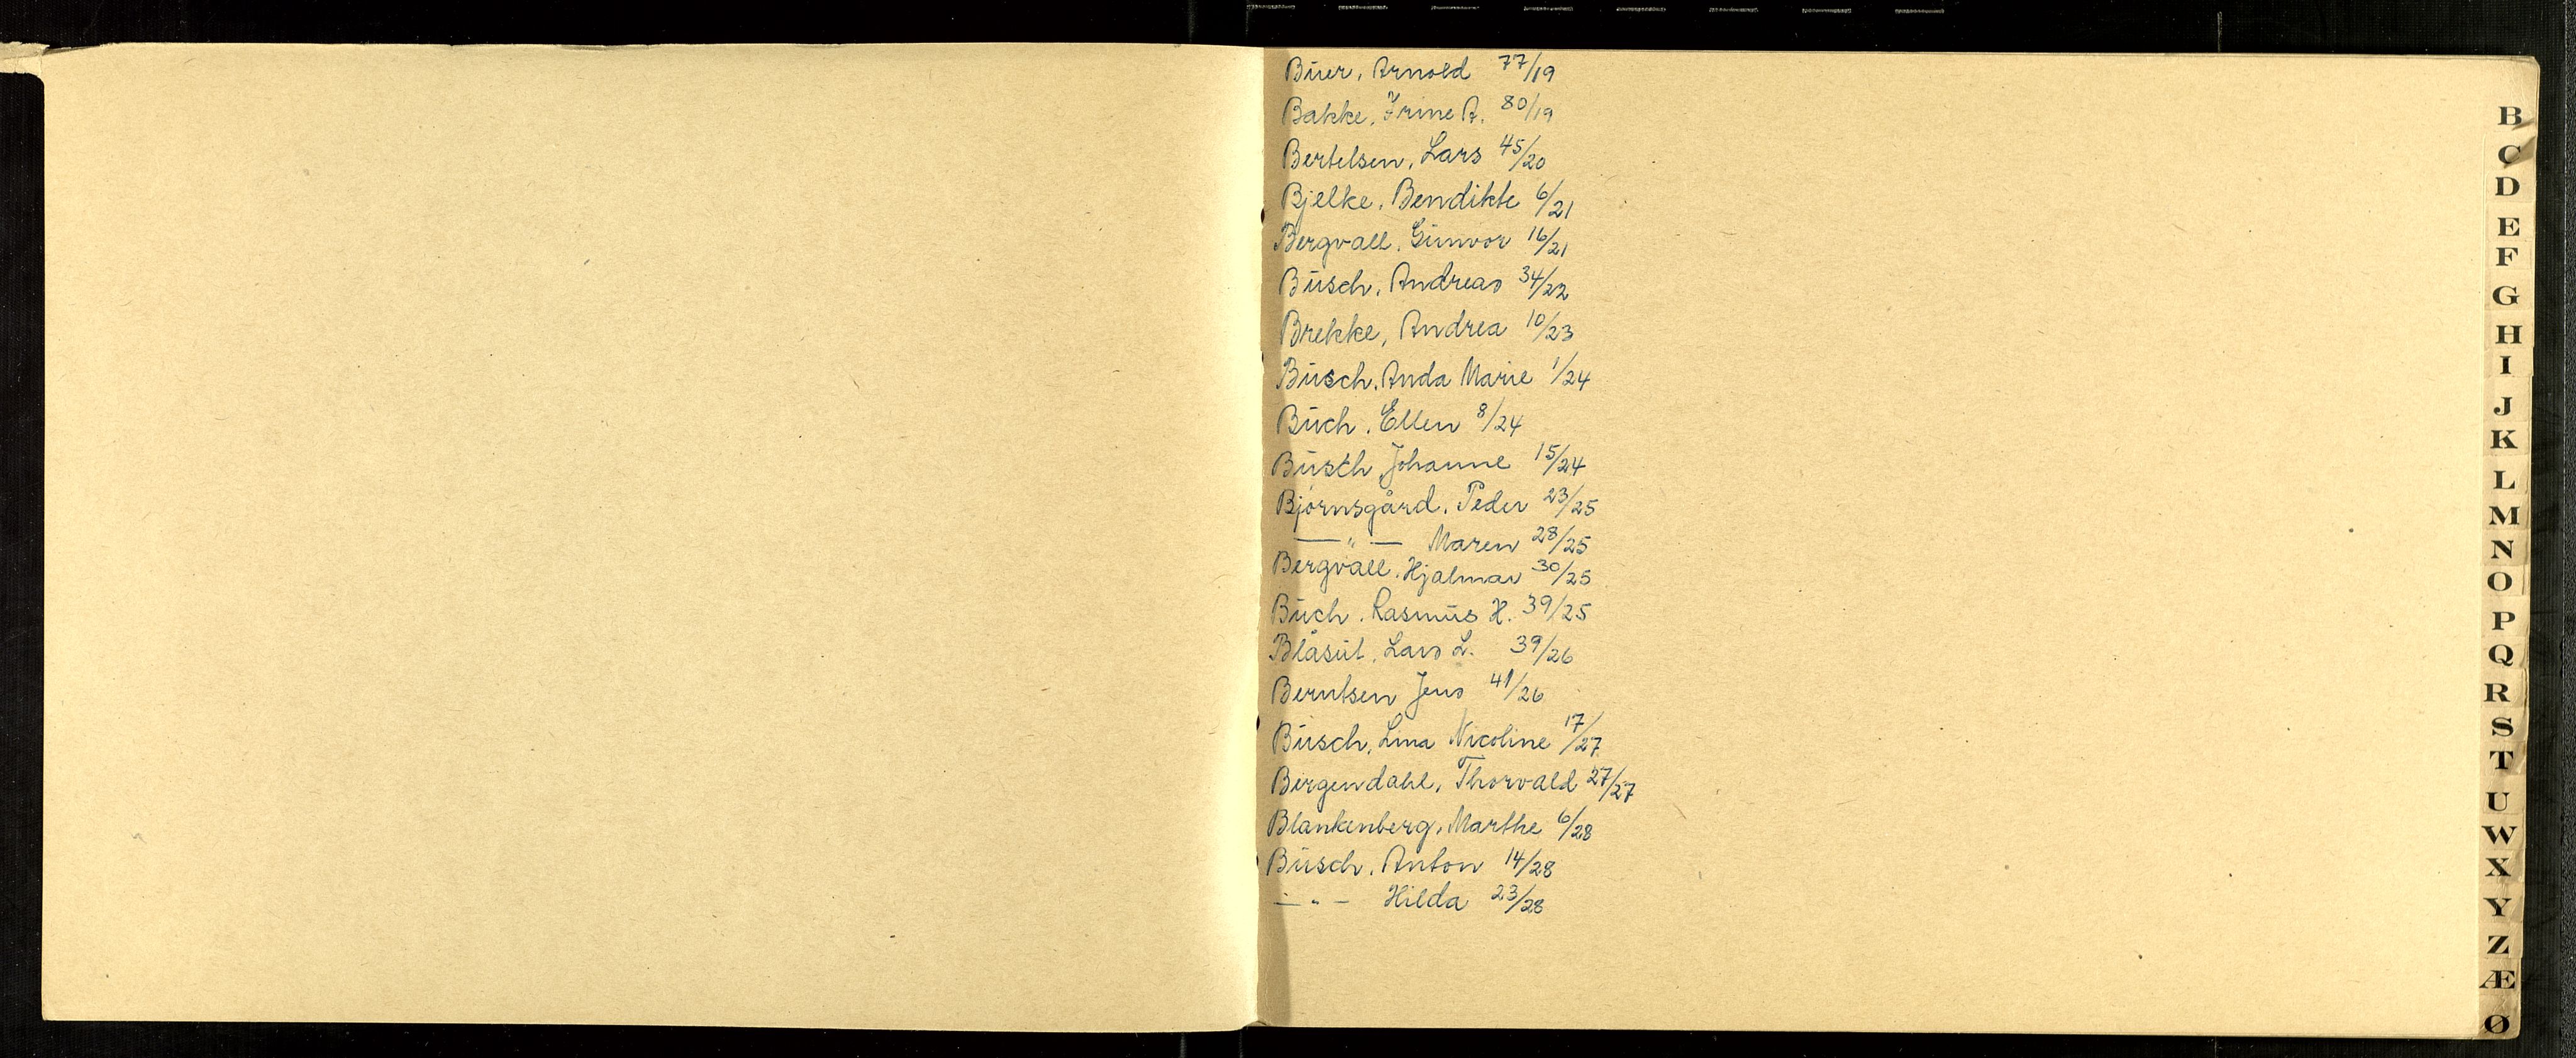 Buer, Arnold 77/19
Bakke, Irine A. 80/19
Bertelsen, Lars 45/20
Bjelke, Bendikte 6/21
Bergvall, Gunvor 16/21
Busch, Andreas 34/22
Brekke, Andrea 10/23
Busch, Anda Marie 1/24
Buch, Ellen 8/24
Busch, Johanne 15/24
Bjørnsgård, Peder 23/25
—"— Maren 28/25
Bergvall, Hjalmar 30/25
Buch, Rasmus H. 39/25
Blåsut, Lars L. 39/26
Berntsen Jens 41/26
Busch, Lina Nicoline 17/27
Bergendahl, Thorvald 27/27
Blankenberg, Marthe 6/28
Busch, Anton 14/28
—"— Hilda 23/28
B
C
D
E
F
G
H
I
J
K
L
M
N
O
P
Q
R
S
T
U
W
X
Y
Z
Æ
Ø